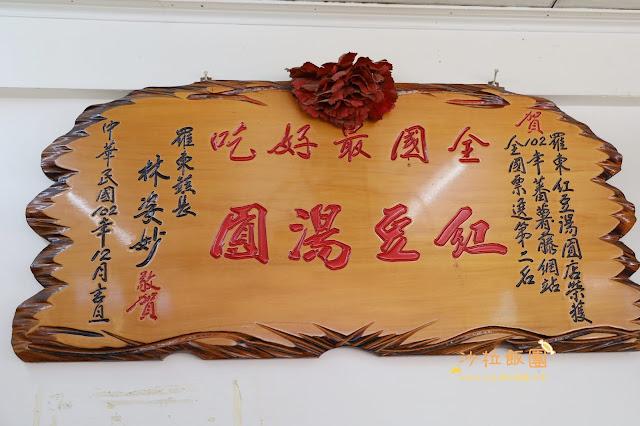 賀
羅東紅豆湯圓店榮獲
102年蕃薯藤網站
全國票選第二名
全國最好吃
紅豆湯圓
羅東鎮長
林姿妙
敬賀
中華民國102年12月吉旦
沙拉飯團